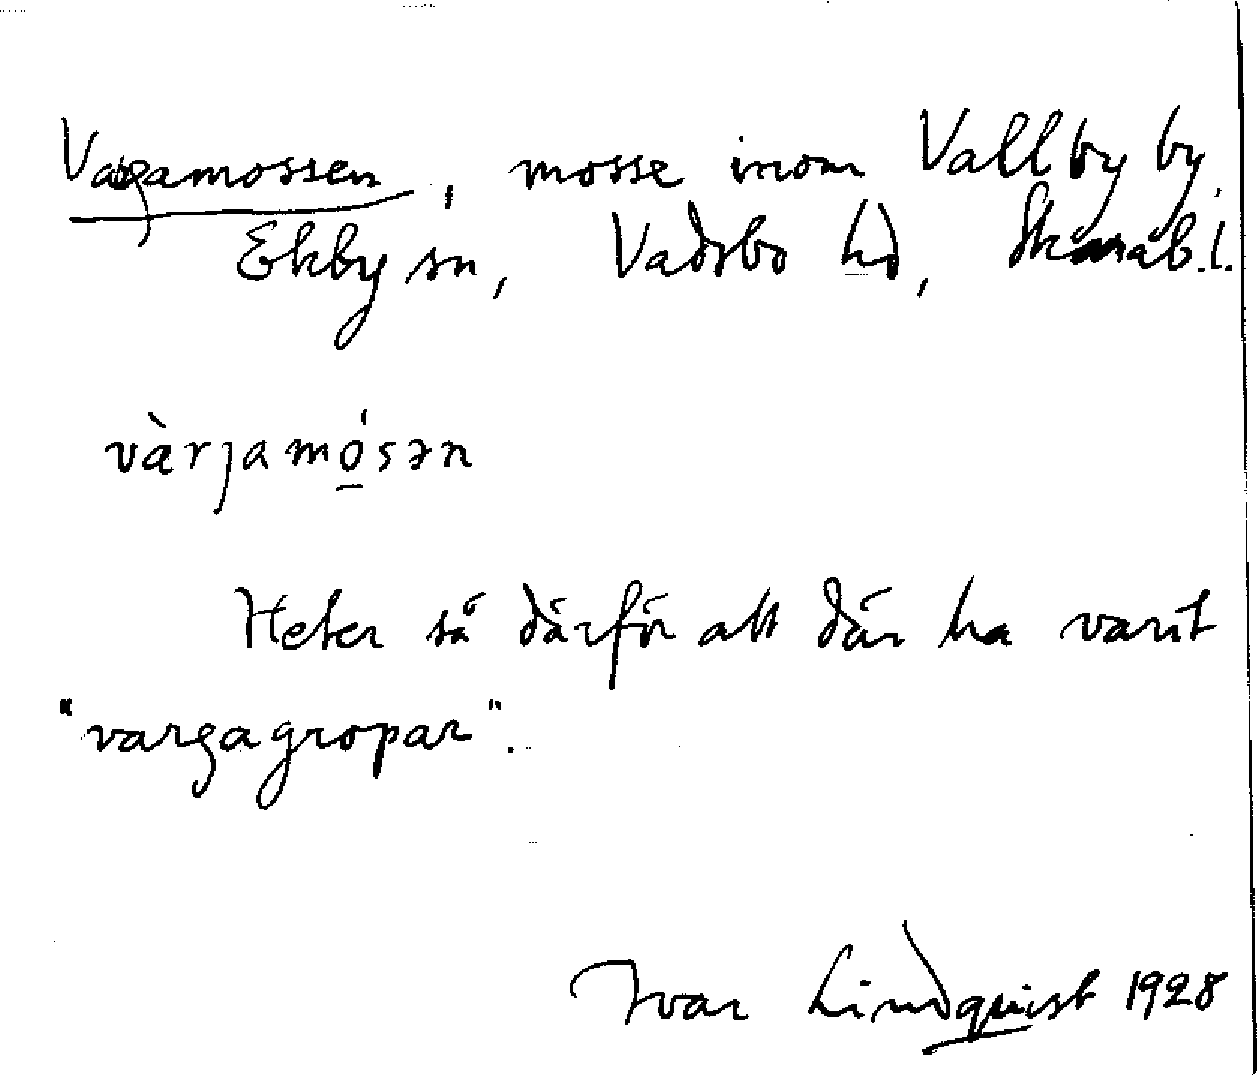 Vargamossen, mosse inom Vallby by,
Ekby sn, Vadsbo hd, Skarab. l.
vàrjamó̱sən
Heter så därför att där ha varit
"vargagropar".
Ivar Lindquist 1928